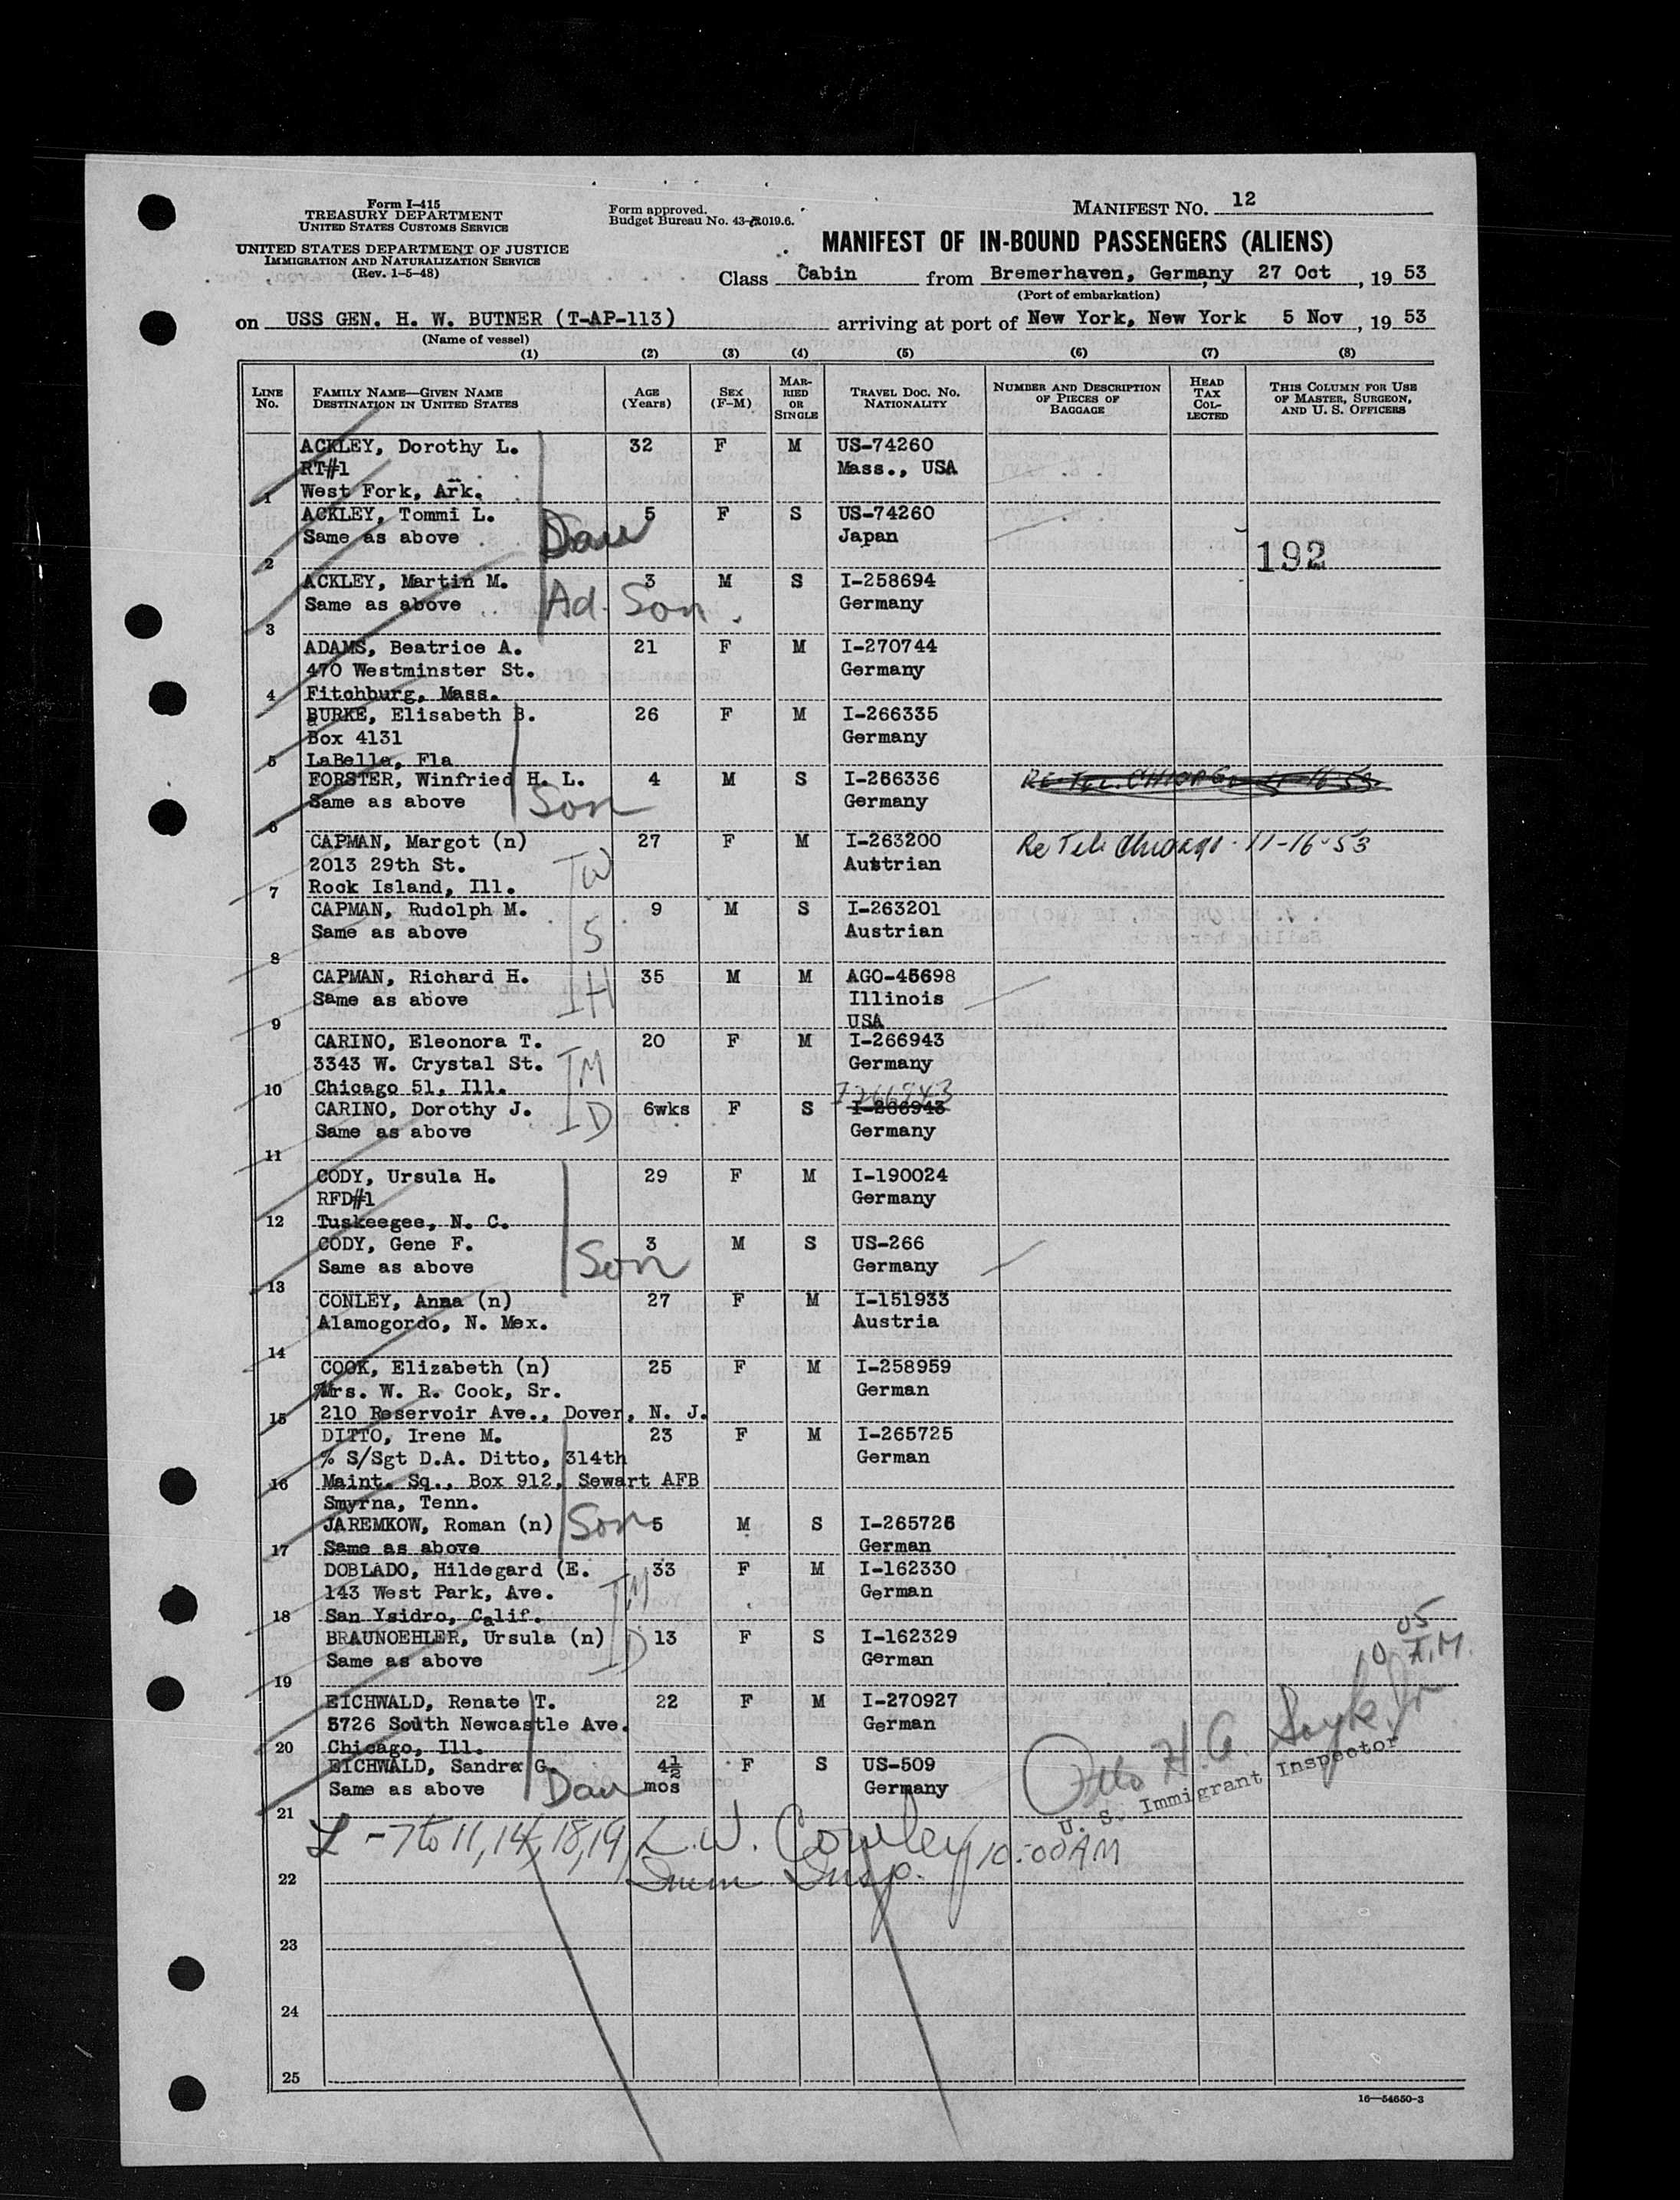 Form I-415
TREASURY DEPARTMENT
UNITED STATES CUSTOMS SERVICE
UNITED STATES DEPARTMENT OF JUSTICE
IMMIGRATION AND NATURALIZATION SERVICE
(Rev. 1-5-48)
Form approved.
Budget Bureau No. 43-R019.6.
MANIFEST NO. 12
MANIFEST OF IN-BOUND PASSENGERS (ALIENS)
Class Cabin from Bremerhaven, Germany, 27 Oct, 1953
(Port of embarkation)
on USS GEN. H. W. BUTNER (T-AP-113) arriving at port of New York, New York 5 Nov, 1953
(Name of vessel)
(1) (2) (3) (4) (5) (6) (7) (8)
LINE No. FAMILY NAME—GIVEN NAME DESTINATION IN UNITED STATES AGE (Years) SEX (F-M) MARRIED OR SINGLE TRAVEL DOC. NO. NATIONALITY NUMBER AND DESCRIPTION OF PIECES OF BAGGAGE HEAD TAX COLLECTED THIS COLUMN FOR USE OF MASTER, SURGEON, AND U. S. OFFICERS
ACKLEY, Dorothy L. 32 F M US-74260
RT#1 Mass., USA
1 West Fork, Ark.
ACKLEY, Tommi L. 5 F S US-74260
Same as above Dau Japan
2 192
ACKLEY, Martin M. 3 M S I-258694
Same as above Ad. Son. Germany
3
ADAMS, Beatrice A. 21 F M I-270744
470 Westminster St. Germany
4 Fitchburg, Mass.
BURKE, Elisabeth B. 26 F M I-266335
Box 4131 Germany
5 LaBelle, Fla
FORSTER, Winfried H. L. 4 M S I-266336
Same as above Son Germany
6
CAPMAN, Margot (n) 27 F M I-263200 Re Tele Chicago - 11-16-53
2013 29th St. W Austrian
7 Rock Island, Ill.
CAPMAN, Rudolph M. 9 M S I-263201
Same as above S Austrian
8
CAPMAN, Richard H. 35 M M AGO-45698
Same as above H Illinois
9 USA
CARINO, Eleonora T. 20 F M I-266943
3343 W. Crystal St. M Germany
10 Chicago 51, Ill. I266943
CARINO, Dorothy J. 6wks F S I-266943
Same as above D Germany
11
CODY, Ursula H. 29 F M I-190024
RFD#1 Germany
12 Tuskeegee, N. C.
CODY, Gene F. 3 M S US-266
Same as above Son Germany
13
CONLEY, Anna (n) 27 F M I-151933
Alamogordo, N. Mex. Austria
14
COOK, Elizabeth (n) 25 F M I-258959
Mrs. W. R. Cook, Sr. German
15 210 Reservoir Ave., Dover, N. J.
DITTO, Irene M. 23 F M I-265725
% S/Sgt D.A. Ditto, 314th German
16 Maint. Sq., Box 912, Sewart AFB
Smyrna, Tenn.
JAREMKOW, Roman (n) Son 5 M S I-265726
17 Same as above German
DOBLADO, Hildegard (E. 33 F M I-162330
143 West Park, Ave. M German
18 San Ysidro, Calif.
BRAUNOEHLER, Ursula (n) 13 F S I-162329
Same as above D German
19
10 05 A.M.
EICHWALD, Renate T. 22 F M I-270927
8726 South Newcastle Ave. German
20 Chicago, Ill.
EICHWALD, Sandra G. 4½ F S US-509
Same as above Dau mos Germany
U. S. Immigrant Inspector
21
L - 7 to 11, 14, 18, 19, L. W. Cowley 10:00 AM
Imm. Insp.
22
23
24
25
16—54650-3